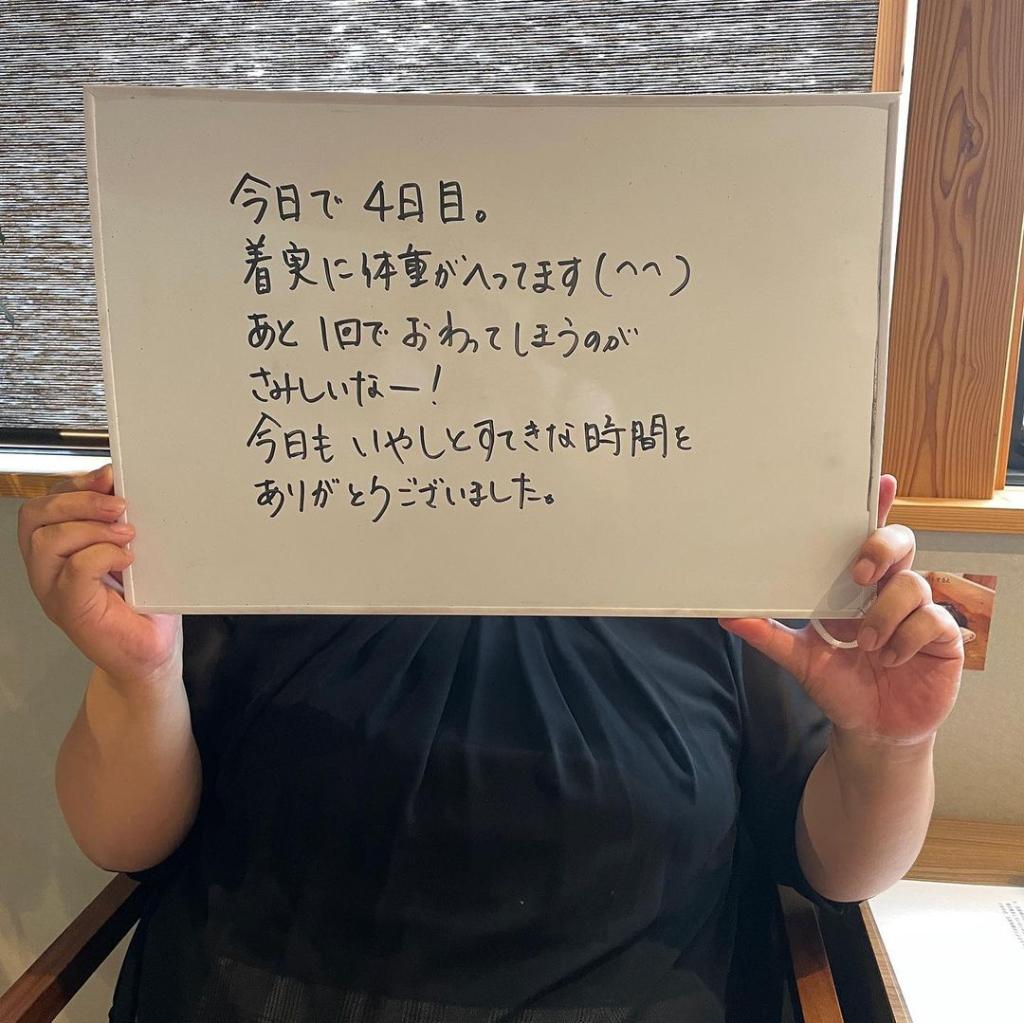 今日で 4日目。
着実に体重がへってます(^^)
あと 1回で おわってしまうのが
さみしいなー!
今日も いやしとすてきな時間を
ありがとうございました。